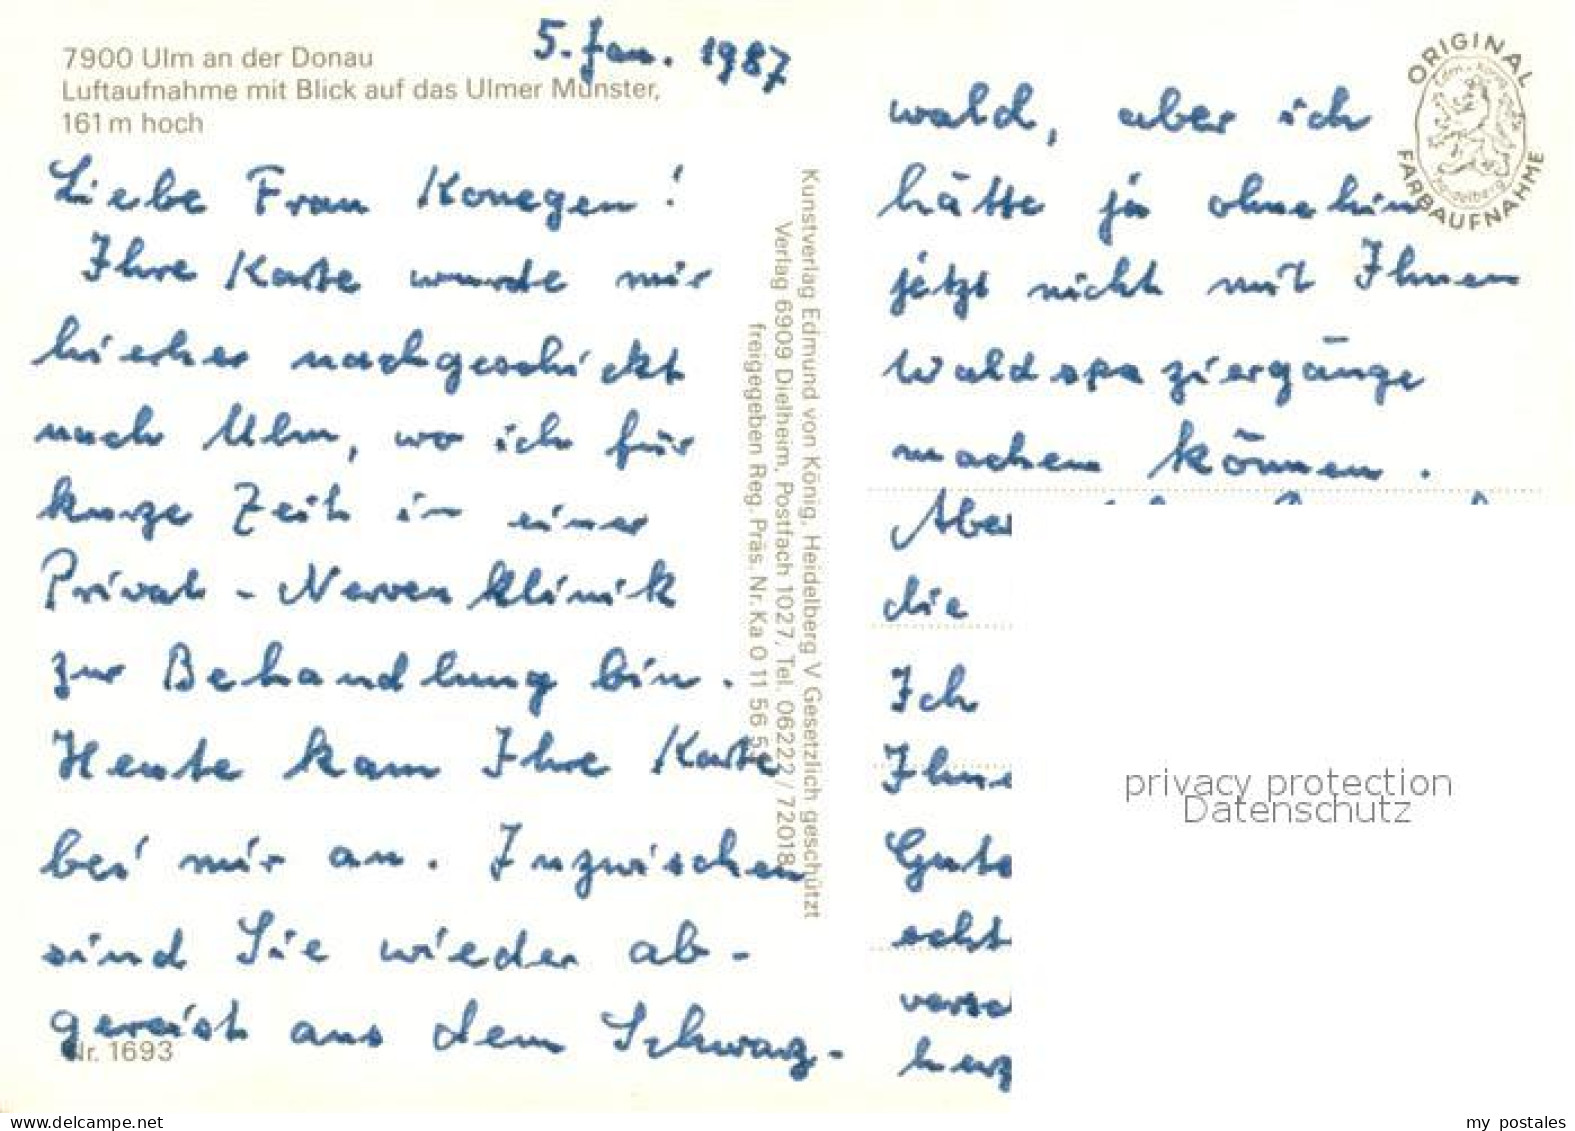 7900 Ulm an der Donau
Luftaufnahme mit Blick auf das Ulmer Münster,
161 m hoch
5. Jan. 1987
Liebe Frau Konegen!
Ihre Karte wurde mir
hierher nachgeschickt
nach Ulm, wo ich für
kurze Zeit in einer
Privat-Nervenklinik
zur Behandlung bin.
Heute kam Ihre Karte
bei mir an. Inzwischen
sind Sie wieder ab-
gereist aus dem Schwarz-
Nr. 1693
Kunstverlag Edmund von König, Heidelberg V Gesetzlich geschützt
Verlag 6909 Dielheim, Postfach 1027, Tel. 06222/72018
freigegeben Reg. Präs. Nr. Ka 0 11 56 5
ORIGINAL
FARBAUFNAHME
Heidelberg
wald, aber ich
hätte ja ohnehin
jetzt nicht mit Ihnen
Waldspaziergänge
machen können.
Aber
die
Ich
Ihne
Gute
echt
versc
herz
privacy protection
Datenschutz
my postales
www.delcampe.net